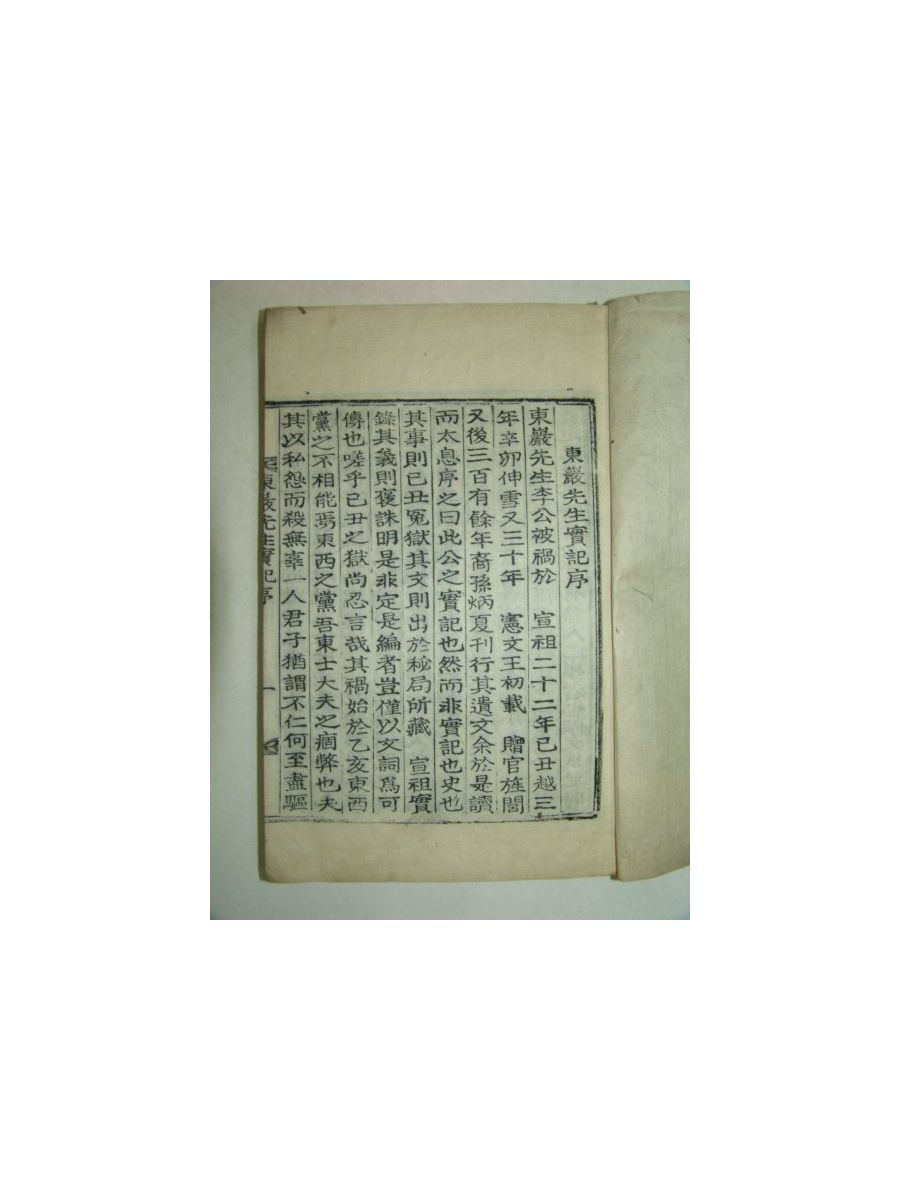 東巖先生實記序
東巖先生李公被禍於 宣祖二十二年己丑越三
年辛卯伸雪又三十年 憲文王初載 贈官旌閭
又後三百有餘年裔孫炳夏刊行其遺文余於是讀
而太息序之曰此公之實記也然而非實記也史也
其事則已丑冤獄其文則出於秘局所藏 宣祖實
錄其義則褒誅明是非定是編者豈僅以文詞爲可
傳也嗟乎己丑之獄尚忍言哉其禍始於乙亥東西
黨之不相能焉東西之黨吾東士大夫之痼弊也夫
其以私怨而殺無辜一人君子猶謂不仁何至盡驅
東巖先生實記序 一